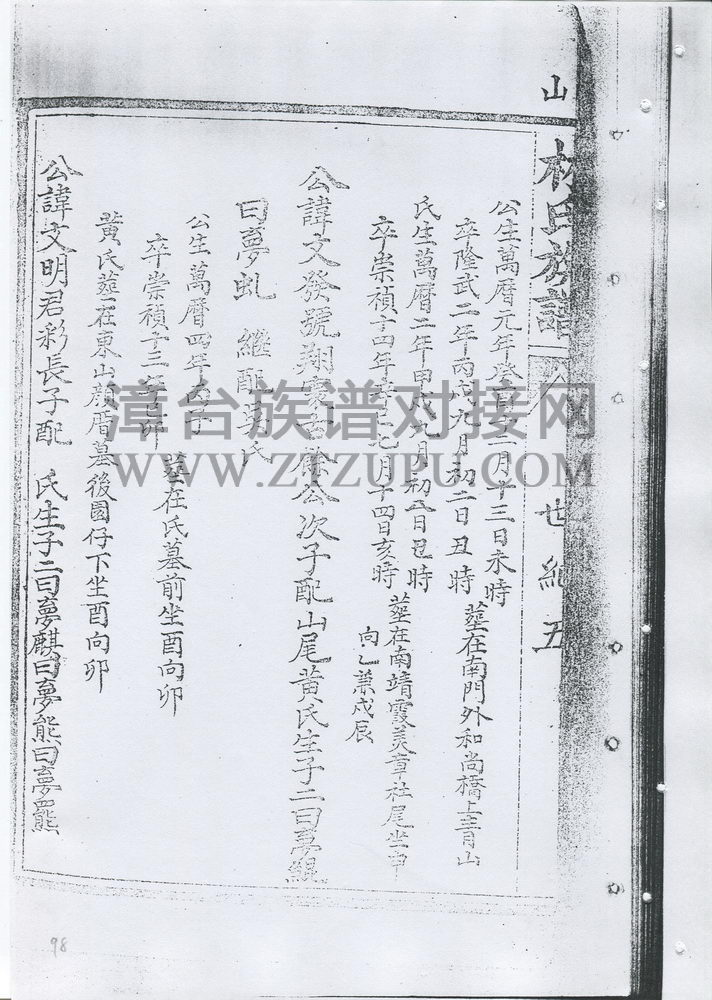 山
林氏族譜
世紀五
公生萬曆元年癸酉二月十三日未時
卒隆武二年丙戌九月初二日丑時 塟在南門外和尚橋上青山
氏生萬曆二年甲戌九月初五日丑時
卒崇禎十四年辛巳九月十四日亥時 塟在南靖霞美草社尾坐申
向乙兼戌辰
公諱文發號翔 公次子配山尾黃氏生子二曰夢鯤
曰夢虬 繼配吳氏
公生萬曆四年丙子
卒崇禎十三年 塟在氏墓前坐酉向卯
黃氏塟在東山顏厝墓後園仔下坐酉向卯
公諱文明君彩長子配 氏生子二曰夢麒曰夢熊曰夢羆
98
漳台族谱对接网
WWW.ZTZUPU.COM